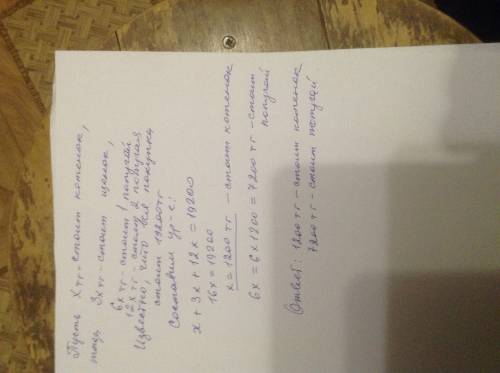 Пусть x тг-стоит котенок,
тогда 3x тг-стоит щенок,
6x тг-стоит 1 попугай
12x тг-стоят 2 попугая
Известно, что вся покупка
стоит 19200тг
Составим ур-е:
x + 3x + 12x = 19200
16x = 19200
x = 1200 тг - стоит котенок
6x = 6 x 1200 = 7200 тг - стоит
попугай
Ответ: 1200 тг - стоит котенок
7200 тг - стоит попугай